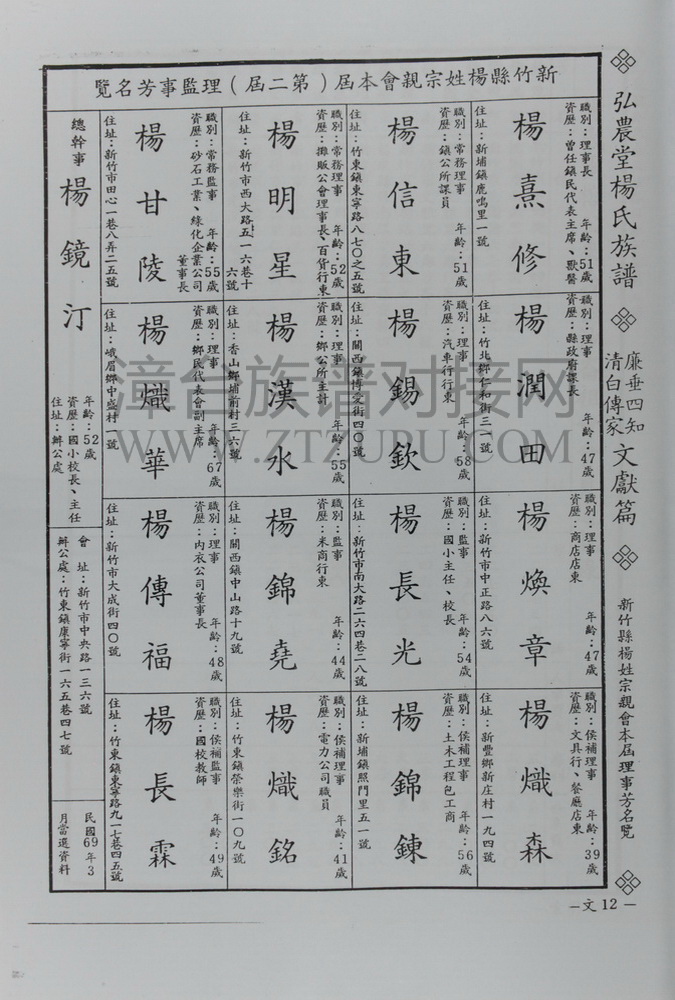 弘農堂楊氏族譜
廉垂四知
清白傳家
文獻篇
新竹縣楊姓宗親會本屆理事芳名覽
新竹縣楊姓宗親會本屆(第二屆)理監事芳名覽
職別:理事長 年齡:51歲
資歷:曾任鎮民代表主席、獸醫
楊熹修
住址:新埔鎮鹿鳴里一號
職別:常務理事 年齡:51歲
資歷:鎮公所課員
楊信東
住址:竹東鎮東寧路八七〇之五號
職別:常務理事 年齡:52歲
資歷:攤販公會理事長、百貨行東
楊明星
住址:新竹市西大路五一六巷十六號
職別:常務監事 年齡:55歲
資歷:砂石工業、綠化企業公司董事長
楊甘陵
住址:新竹市田心一巷八弄二五號
職別:理事 年齡:47歲
資歷:縣政府課長
楊潤田
住址:竹北鄉仁和街三一號
職別:理事 年齡:58歲
資歷:汽車行行東
楊錫欽
住址:關西鎮博愛街四〇號
職別:理事 年齡:55歲
資歷:鄉公所主計
楊漢水
住址:香山鄉埔前村三六號
職別:理事 年齡:67歲
資歷:鄉民代表會副主席
楊熾華
住址:峨眉鄉中盛村一號
職別:理事 年齡:47歲
資歷:商店店東
楊煥章
住址:新竹市中正路八六號
職別:監事 年齡:54歲
資歷:國小主任、校長
楊長光
住址:新竹市南大路二六四巷二八號
職別:監事 年齡:44歲
資歷:米商行東
楊錦堯
住址:關西鎮中山路十九號
職別:理事 年齡:48歲
資歷:內衣公司董事長
楊傳福
住址:新竹市大成街四〇號
職別:侯補理事 年齡:39歲
資歷:文具行、餐廳店東
楊熾森
住址:新豐鄉新庄村一九四號
職別:侯補理事 年齡:56歲
資歷:土木工程包工商
楊錦鍊
住址:新埔鎮照門里五一號
職別:侯補理事 年齡:41歲
資歷:電力公司職員
楊熾銘
住址:竹東鎮榮樂街一〇九號
職別:侯補監事 年齡:49歲
資歷:國校教師
楊長霖
住址:竹東鎮東寧路九一七巷四五號
總幹事 楊鏡汀
年齡:52歲
資歷:國小校長、主任
住址:辦公處
會址:新竹市中央路一三六號
辦公處:竹東鎮康寧街一六五巷四七號
民國69年3
月當選資料
—文12—
漳台族谱对接网
WWW.ZTZUPU.COM